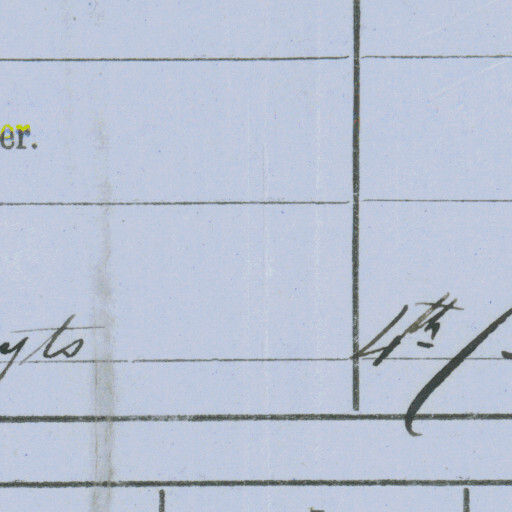 er.
yts 4th